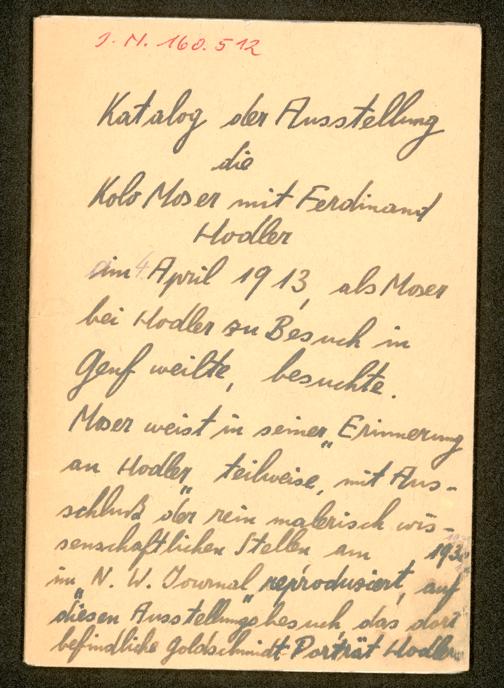 J. N. 160.512
Katalog der Ausstellung
die
Kolo Moser mit Ferdinand
Hodler
am 4 April 1913, als Moser
bei Hodler zu Besuch in
Genf weilte, besuchte.
Moser weist in seiner „Erinnerung
an Hodler", teilweise, mit Aus-
schluß der rein malerisch wis-
senschaftlichen Stellen am 193
im N. W. Journal reproduziert, auf
diesen Ausstellungsbesuch, das dort
befindliche Goldschmidt-Porträt Hodlers